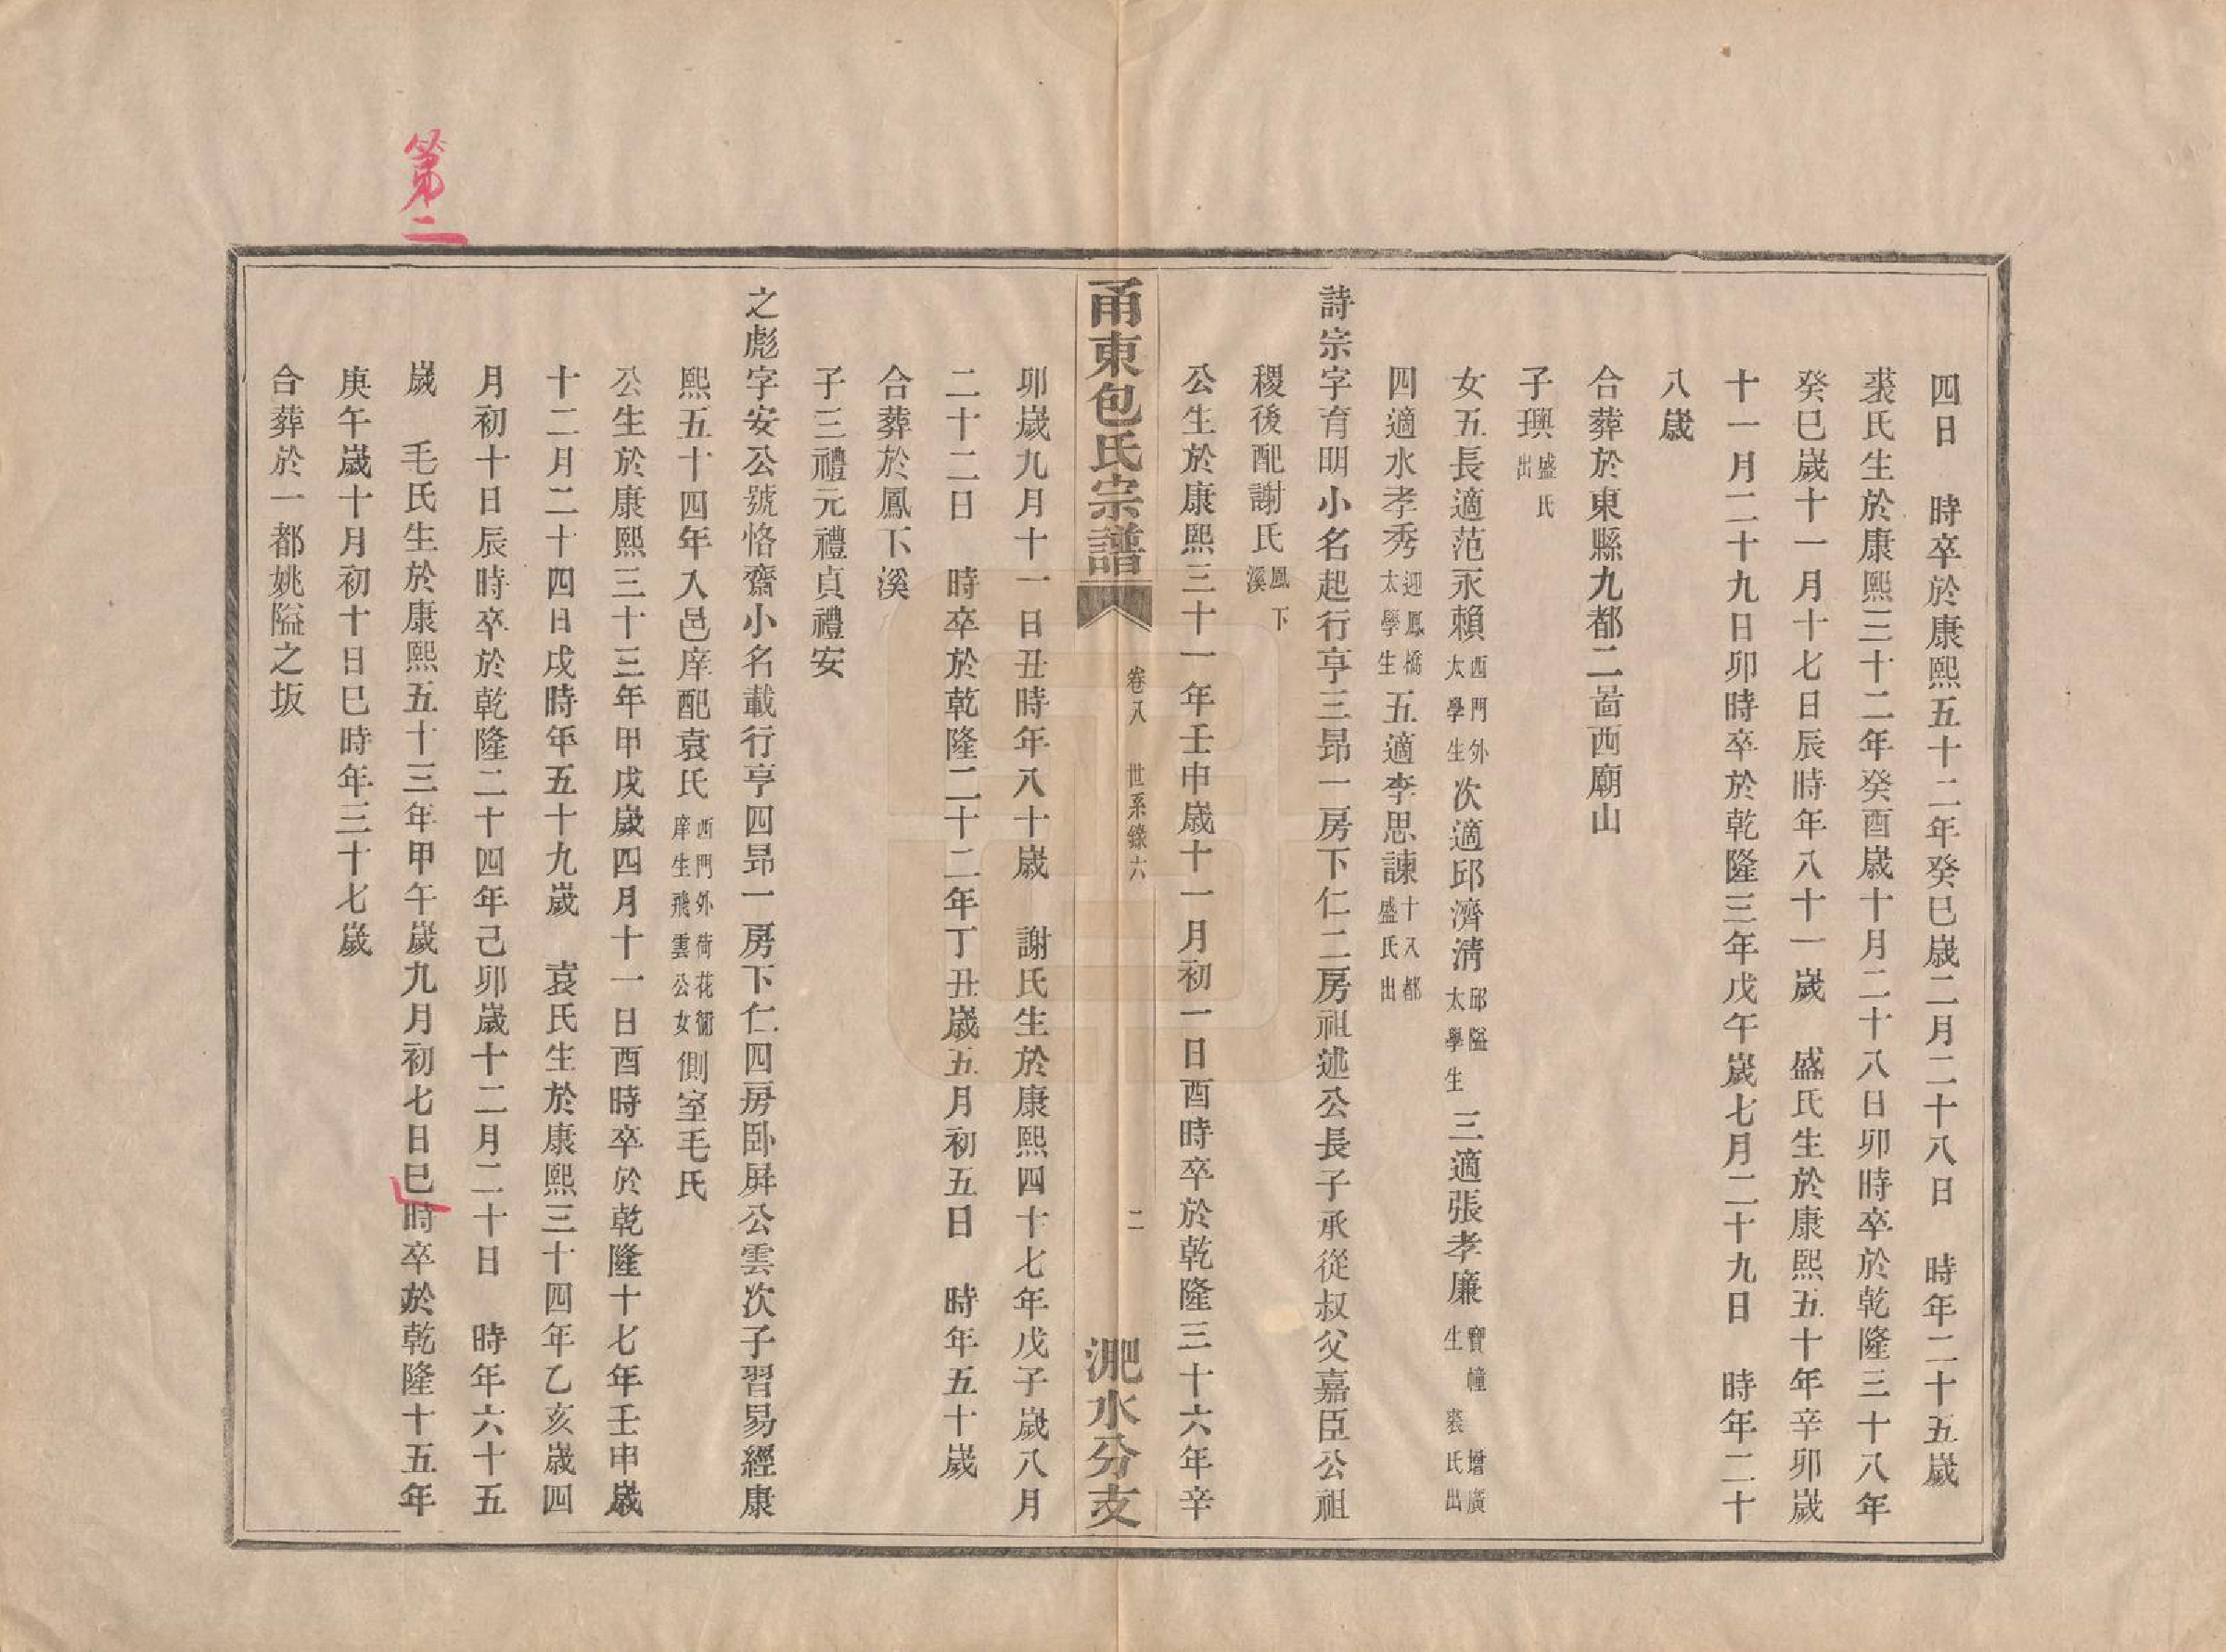 四日　時卒於康熙五十二年癸巳歲二月二十八日　時年二十五歲
裘氏生於康熙三十二年癸酉歲十月二十八日卯時卒於乾隆三十八年
癸巳歲十一月十七日辰時年八十一歲　盛氏生於康熙五十年辛卯歲
十一月二十九日卯時卒於乾隆三年戊午歲七月二十九日　時年二十
八歲
合葬於東縣九都二啚西廟山
子璵盛氏出
女五長適范永賴西門外太學生次適邱濟淸邱隘太學生三適張孝廉寶幢增廣生裘氏出
四適水孝秀迎鳳橋太學生五適李思諫十八都盛氏出
詩宗字育明小名起行亨三昻一房下仁二房祖述公長子承從叔父嘉臣公祖
稷後配謝氏鳳下溪
公生於康熙三十一年壬申歲十一月初一日酉時卒於乾隆三十六年辛
甬東包氏宗譜　卷八　世系錄六　二　淝水分支
卯歲九月十一日丑時年八十歲　謝氏生於康熙四十七年戊子歲八月
二十二日　時卒於乾隆二十二年丁丑歲五月初五日　時年五十歲
合葬於鳳下溪
子三禮元禮貞禮安
之彪字安公號恪齋小名載行亨四昻一房下仁四房卧屛公雲次子習易經康
熙五十四年入邑庠配袁氏西門外荷花衕庠生飛雲公女側室毛氏
公生於康熙三十三年甲戌歲四月十一日酉時卒於乾隆十七年壬申歲
十二月二十四日戌時年五十九歲　袁氏生於康熙三十四年乙亥歲四
月初十日辰時卒於乾隆二十四年己卯歲十二月二十日　時年六十五
歲　毛氏生於康熙五十三年甲午歲九月初七日巳時卒於乾隆十五年
庚午歲十月初十日巳時年三十七歲
合葬於一都姚隘之坂
第二